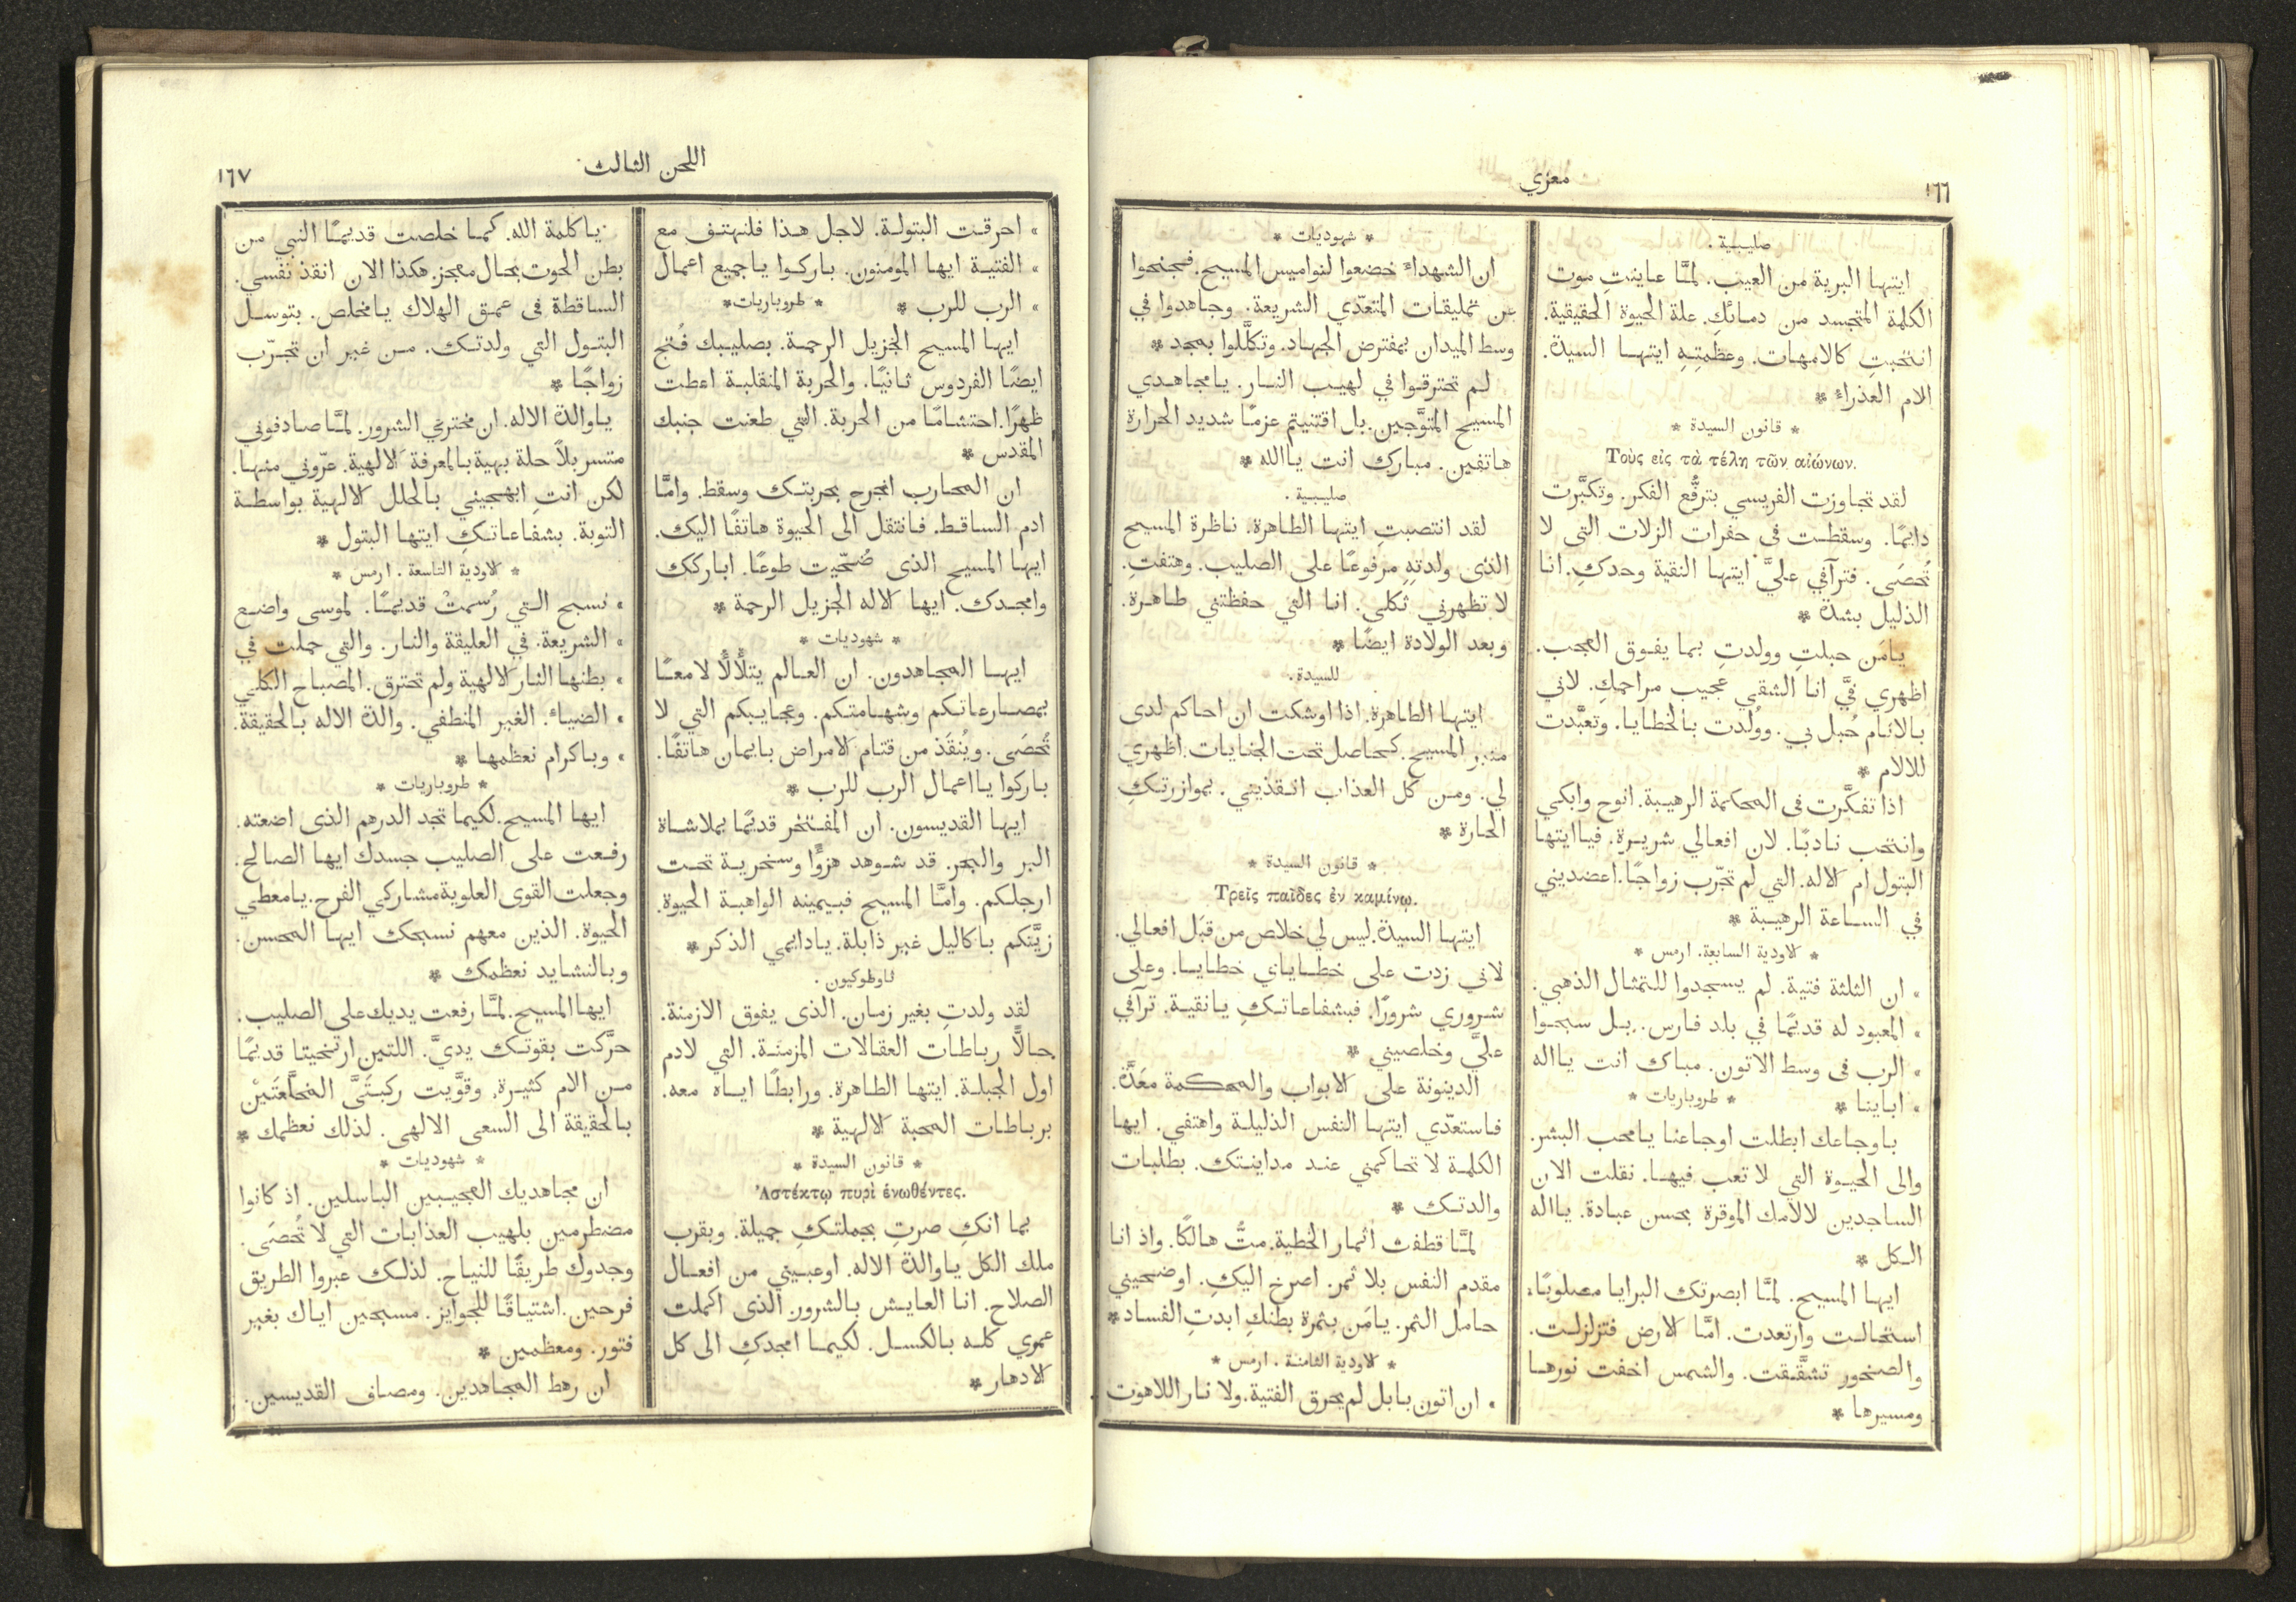 ١٦٦
معزي
صليبية .
ايتها البرية من العيب. لمَّا عاينتِ موت
الكلمة المتجسد من دمائكِ. علة الحيوة الحقيقية.
انتحبتِ كالامهات. وعظمتِهِ ايتها السيدة.
الام العذراء *
* قانون السيدة *
Τοὺς εἰς τὰ τέλη τῶν αἰώνων.
لقد تجاوزت الفريسي بترفُّع الفكر. وتكبَّرت
دايمًا. وسقطت فى حفرات الزلات التى لا
تُحصَى. فترآفي عليَّ ايتها النقية وحدكِ. انا
الذليل بشدة *
يامَن حبلتِ وولدتِ بما يفوق العجب.
اظهري فيَّ انا الشقى عجيب مراحمكِ. لاني
بالاثام حُبل بي. ووُلدت بالخطايا. وتعبَّدت
للالام *
اذا تفكَّرت فى المحاكمة الرهيبة. انوح وابكي
وانتحب نادبًا. لان افعالي شريرة. فيا ايتها
البتول ام الاله. التي لم تجرّب زواجًا. اعضديني
في الساعة الرهيبة *
* الاودية السابعة. ارمس *
» ان الثلثة فتية. لم يسجدوا للتمثال الذهبي.
» المعبود له قديمًا في بلد فارس. بل سبحوا
» الرب فى وسط الاتون. مباك انت يااله
» اباينا * * طروباريات *
باوجاعك ابطلت اوجاعنا يامحب البشر.
والى الحيوة التي لا تعب فيها. نقلت الان
الساجدين لالامك الموقرة بحسن عبادة. يااله
الكل *
ايها المسيح. لمَّا ابصرتك البرايا مصلوبًا.
استحالت وارتعدت. امَّا الارض فتزلزلت.
والصخور تشقَّقت. والشمس اخفت نورها
ومسيرها *
* شهوديات *
ان الشهداء خضعوا لنواميس المسيح. فجنحوا
عن تمليقات المتعدّي الشريعة. وجاهدوا في
وسط الميدان بمفترض الجهاد. وتكلَّلوا بمجد *
لم تحترقوا في لهيب النار. يامجاهدي
المسيح المتوَّجين. بل اقتنيتم عزمًا شديد الحرارة
هاتفين. مبارك انت ياالله *
صليبية .
لقد انتصبتِ ايتها الطاهرة. ناظرة المسيح
الذى ولدتهِ مرفوعًا على الصليب. وهتفتِ.
لا تظهرني ثكلى. انا التي حفظتني طاهرة.
وبعد الولادة ايضًا *
للسيدة .
ايتها الطاهرة. اذا اوشكت ان احاكم لدى
منبر المسيح. كحاصل تحت الجنايات. اظهري
لي. ومن كل العذاب انقذيني. بموازرتكِ
الحارة *
* قانون السيدة *
Τρεῖς παῖδες ἐν καμίνῳ.
ايتها السيدة. ليس لي خلاص من قبَل افعالي.
لاني زدت على خطاياي خطايا. وعلى
شروري شرورًا. فبشفاعاتكِ يانقية. ترآفي
عليَّ وخلصيني *
الدينونة على الابواب والمحكمة معَدَّة.
فاستعدّي ايتها النفس الذليلة واهتفي. ايها
الكلمة لا تحاكمني عند مداينتك. بطلبات
والدتك *
لمَّا قطفت اثمار الخطية. متُّ هالكًا. واذ انا
مقدم النفس بلا ثمر. اصرخ اليكِ. اوضحيني
حامل الثمر. يامَن بثمرة بطنكِ ابدتِ الفساد *
* الاودية الثامنة . ارمس *
» ان اتون بابل لم يحرق الفتية. ولا نار اللاهوت
اللحن الثالث
١٦٧
» احرقت البتولة. لاجل هذا فلنهتف مع
» الفتية ايها المومنون. باركوا ياجميع اعمال
» الرب للرب * * طروباريات *
ايها المسيح الجزيل الرحمة. بصليبك فُتح
ايضًا الفردوس ثانيًا. والحربة المنقلبة اعطت
ظهرًا. احتشامًا من الحربة. التي طعنت جنبك
المقدس *
ان المحارب انجرح بحربتك وسقط. وامَّا
ادم الساقط. فانتقل الى الحيوة هاتفًا اليك.
ايها المسيح الذى ضُحّيت طوعًا. اباركك
وامجدك. ايها الاله الجزيل الرحمة *
* شهوديات *
ايها المجاهدون. ان العالم يتلألأ لامعًا
بمصارعاتكم وشهامتكم. وعجايبكم التي لا
تُحصَى. ويُنقَذ من قتام الامراض بايمان هاتفًا.
باركوا يااعمال الرب للرب *
ايها القديسون. ان المفتخر قديمًا بملاشاة
البر والبحر. قد شوهد هزؤًا وسخرية تحت
ارجلكم. وامَّا المسيح فبيمينه الواهبة الحيوة.
زيَّنكم باكاليل غير ذابلة. يادايمي الذكر *
ثاوطوكيون .
لقد ولدتِ بغير زمان. الذى يفوق الازمنة.
حالًّا رباطات العقالات المزمنة. التي لادم
اول الجبلة. ايتها الطاهرة. ورابطًا اياه معه.
برباطات المحبة الالهية *
* قانون السيدة *
Ἀστέκτῳ πυρὶ ἑνωθέντες.
بما انكِ صرتِ بجملتكِ جميلة. وبقرب
ملك الكل ياوالدة الاله. اوعبيني من افعال
الصلاح. انا العايش بالشرور. الذى اكملت
عمري كله بالكسل. لكيما امجدكِ الى كل
الادهار *
ياكلمة الله. كما خلصت قديمًا النبي من
بطن الحوت بحال معجز. هكذا الان انقذ نفسي.
الساقطة فى عمق الهلاك يامخلص. بتوسل
البتول التي ولدتك. من غير ان تجرّب
زواجًا *
ياوالدة الاله. ان مخترعي الشرور. لمَّا صادفوني
متسربلاً حلة بهية بالمعرفة الالهية. عرّوني منها.
لكن انتِ ابهجيني بالحلل الالهية بواسطة
التوبة. بشفاعاتكِ ايتها البتول *
* الاودية التاسعة . ارمس *
» نسبح التي رُسمتْ قديمًا. لموسى واضع
» الشريعة. في العليقة والنار. والتي حملت في
» بطنها النار الالهية ولم تحترق. المصباح الكلي
» الضياء. الغير المنطفي. والدة الاله بالحقيقة.
» وباكرام نعظمها *
* طروباريات *
ايها المسيح. لكيما تجد الدرهم الذى اضعته.
رفعت على الصليب جسدك ايها الصالح.
وجعلت القوى العلوية مشاركي الفرح. يامعطي
الحيوة. الذين معهم نسبحك ايها المحسن.
وبالنشايد نعظمك *
ايها المسيح. لمَّا رفعت يديك على الصليب.
حرَّكت بقوتك يديَّ. اللتين ارتختا قديمًا
من الام كثيرة. وقوَّيت ركبتَيَّ المخلَّعتَيْن
بالحقيقة الى السعى الالهى. لذلك نعظمك *
* شهوديات *
ان مجاهديك العجيبين الباسلين. اذ كانوا
مضطرمين بلهيب العذابات التي لا تُحصَى.
وجدوك طريقًا للنياح. لذلك عبروا الطريق
فرحين. اشتياقًا للجوايز. مسبحين اياك بغير
فتور. ومعظمين *
ان رهط المجاهدين. ومصاف القديسين.